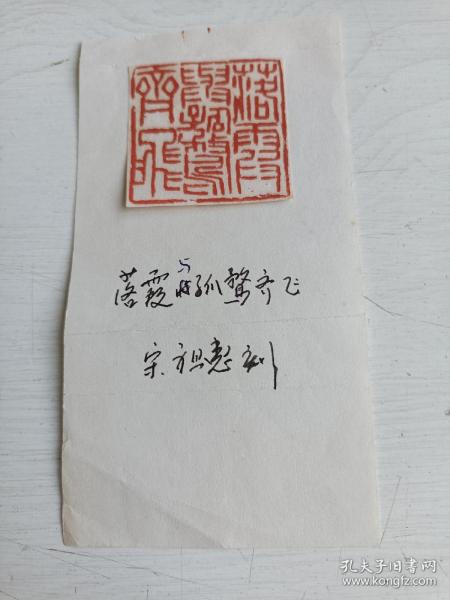 落霞
與孤鶩
齊飛
落霞与孤鶩齐飞
宋祖惠刻
孔夫子旧书网
www.kongfz.com